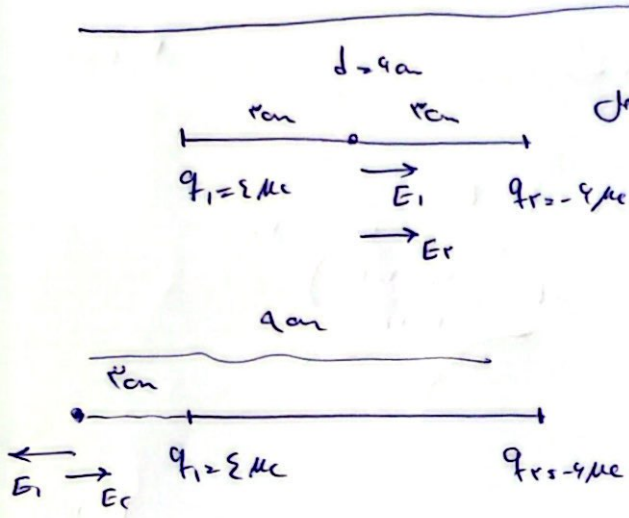 d = ۶cm
۳cm ۳cm
q₁ = ۴ μc E₁ q۲ = -۶ μc
E۲
۹cm
۳cm
E₁ E۲ q₁ = ۴ μc q۲ = -۶ μc